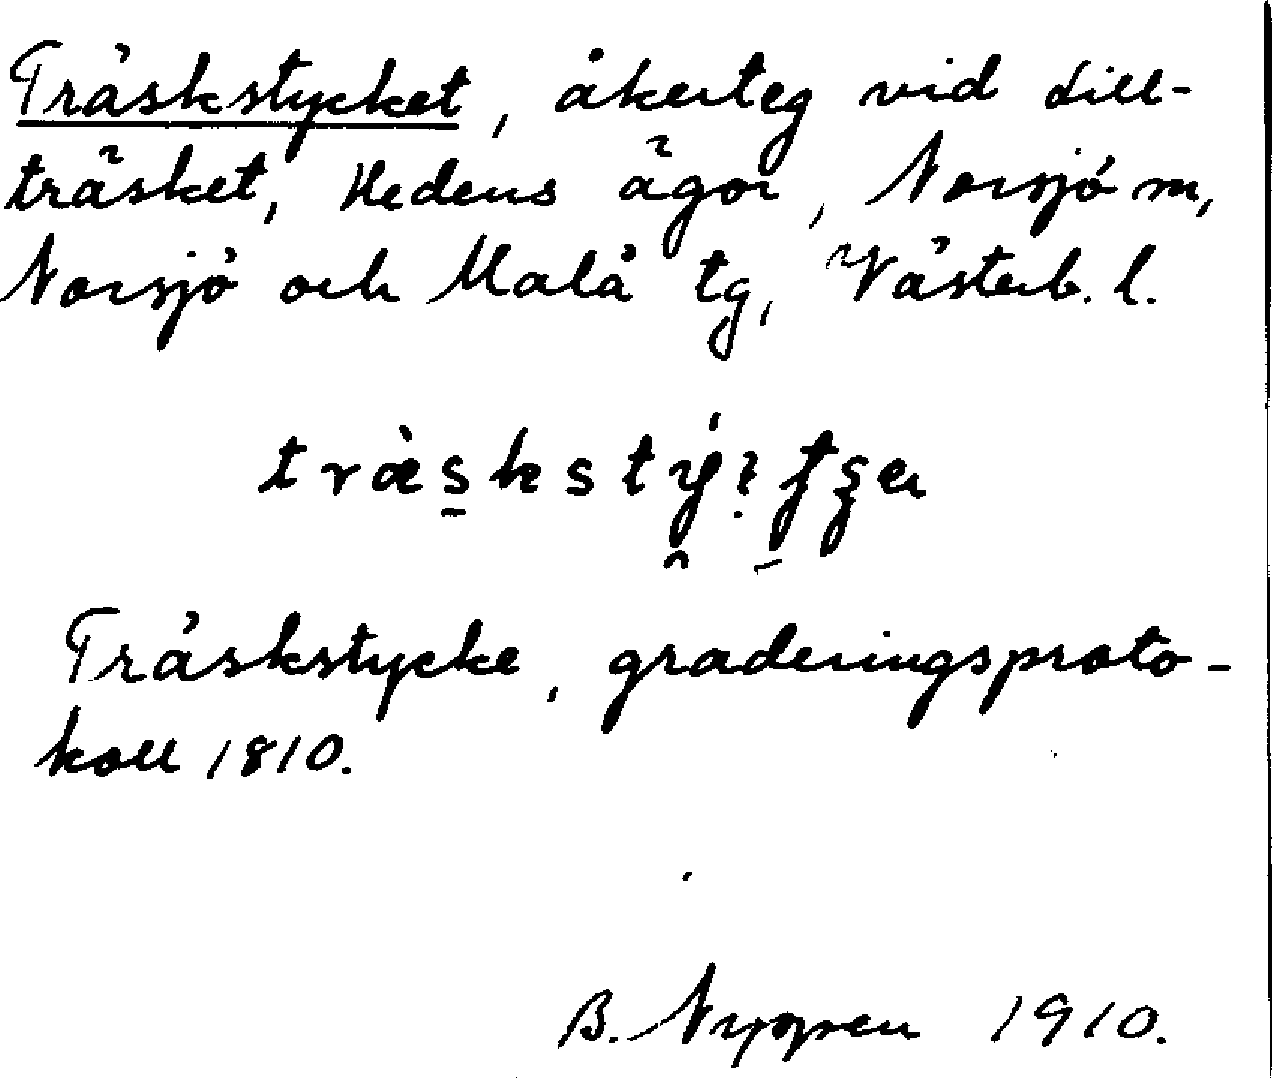 Träskstycket, åkerteg vid Lill-
träsket, Hedens ägor, Norsjö sn,
Norsjö och Malå tg, Västerb. l.
Träskstycke, graderingsproto-
koll 1810.
B. Nygren 1910.